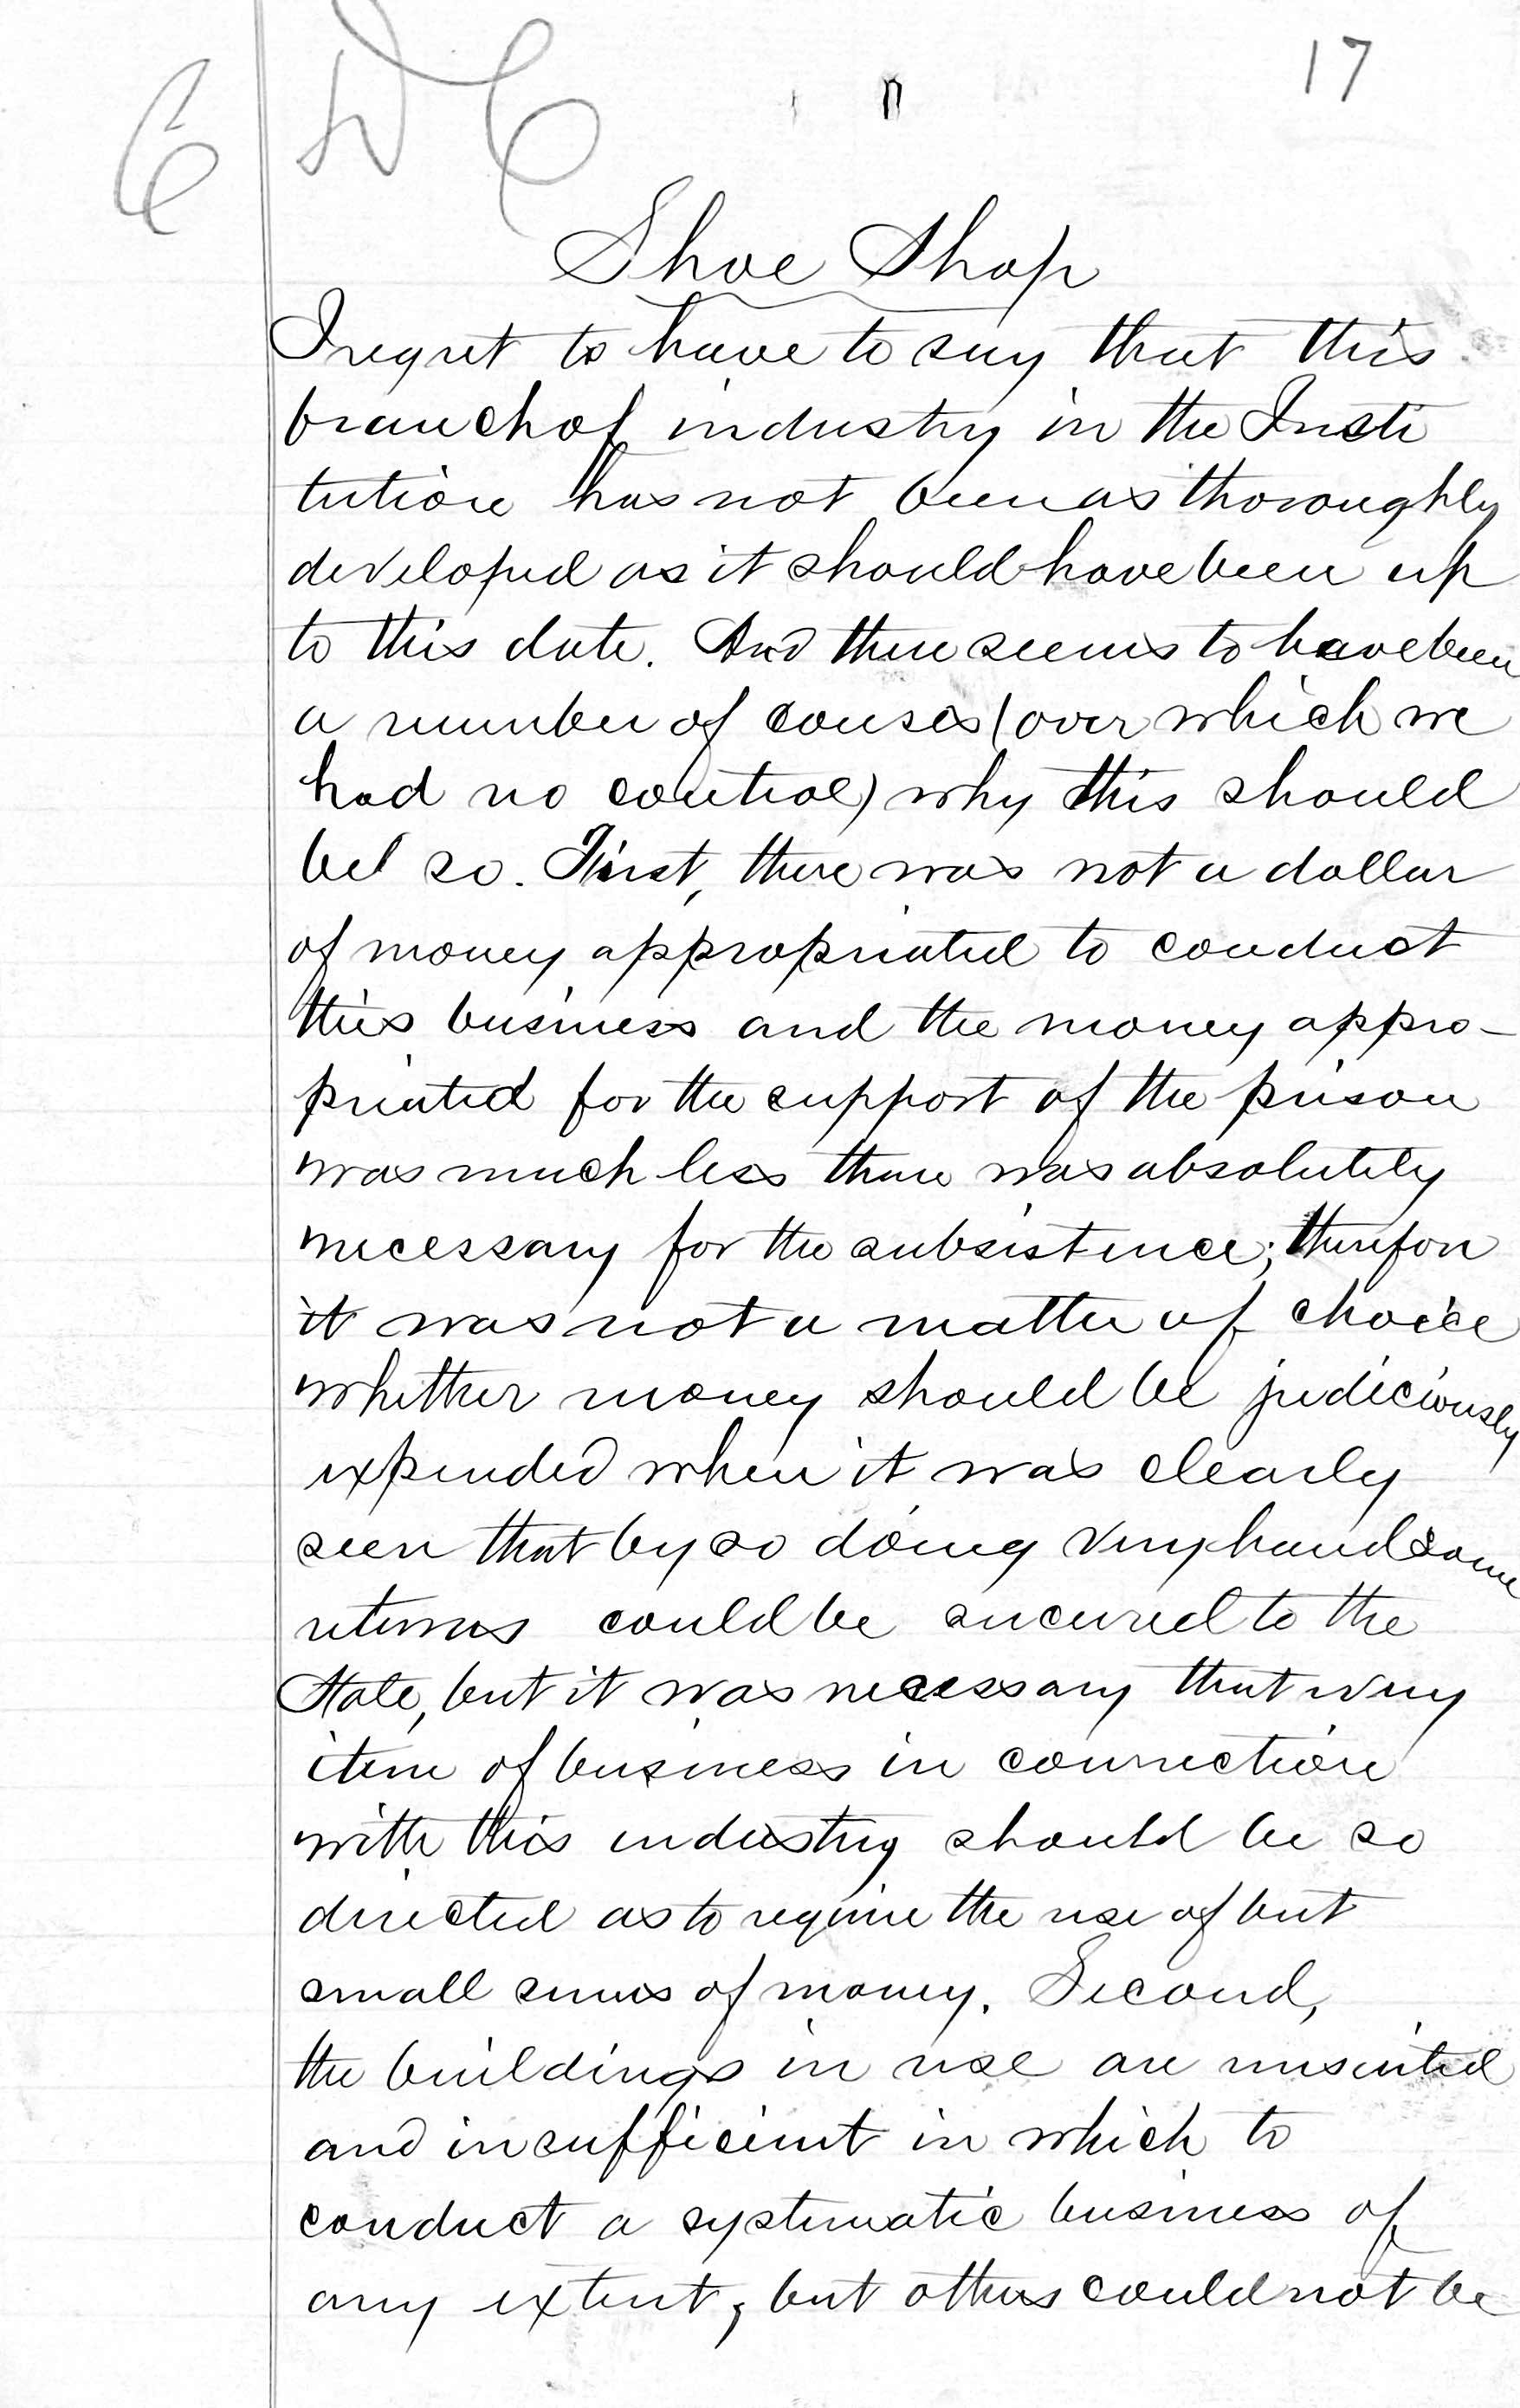 17
Shoe Shop
I regret to have to say that this
branch of industry in the Insti
tution has not been as thoroughly
developed as it should have been up
to this date. And there seems to have been
a number of causes (over which we
had no control) why this should
be so. First, there was not a dollar
of money appropriated to conduct
this business and the money appro-
priated for the support of the prison
was much less than was absolutely
necessary for the subsistence; therefore
it was not a matter of choice
whether money should be judiciously
expended when it was clearly
seen that by so doing very handsome
returns could be secured to the
State, but it was necessary that every
item of business in connection
with this industry should be so
directed as to require the use of but
small sums of money. Second,
the buildings in use are unsuited
and insufficient in which to
conduct a systematic business of
any extent; but others could not be